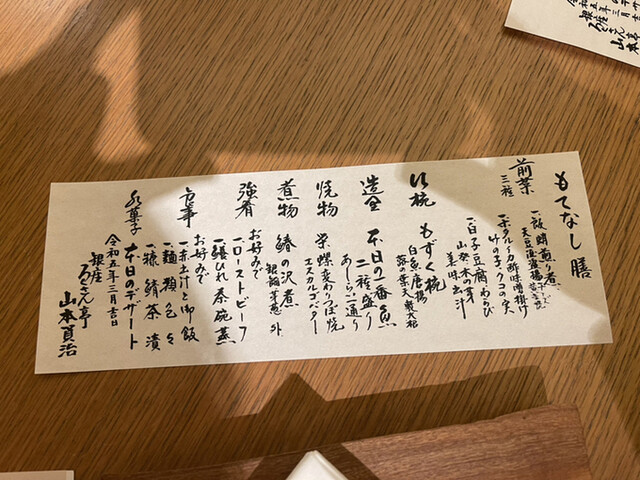 もてなし膳
前菜
三種
一、飯蛸煎り煮
天豆
一、ホタルイカ酢味噌掛け
竹の子 クコの実
一、白子豆腐 わらび
山桜 木の芽
美味出汁
吸椀
もずく椀
白魚唐揚
蕗の葉天
造里
本日の一番魚
二種盛り
あしらい一通り
焼物
栄螺変わりつぼ焼
エスカルゴバター
煮物
鰆の沢煮
外
強肴
お好みで
一、ローストビーフ
一、鱶ひれ茶碗蒸
食事
お好みで
一、赤土けと御飯
一、麺類色々
一、漬鯖茶漬
水菓子
本日のデザート
令和五年三月吉日
銀座
ろくさん亭
山本真治
令和五年三月吉日
銀座
ろくさん亭
山本